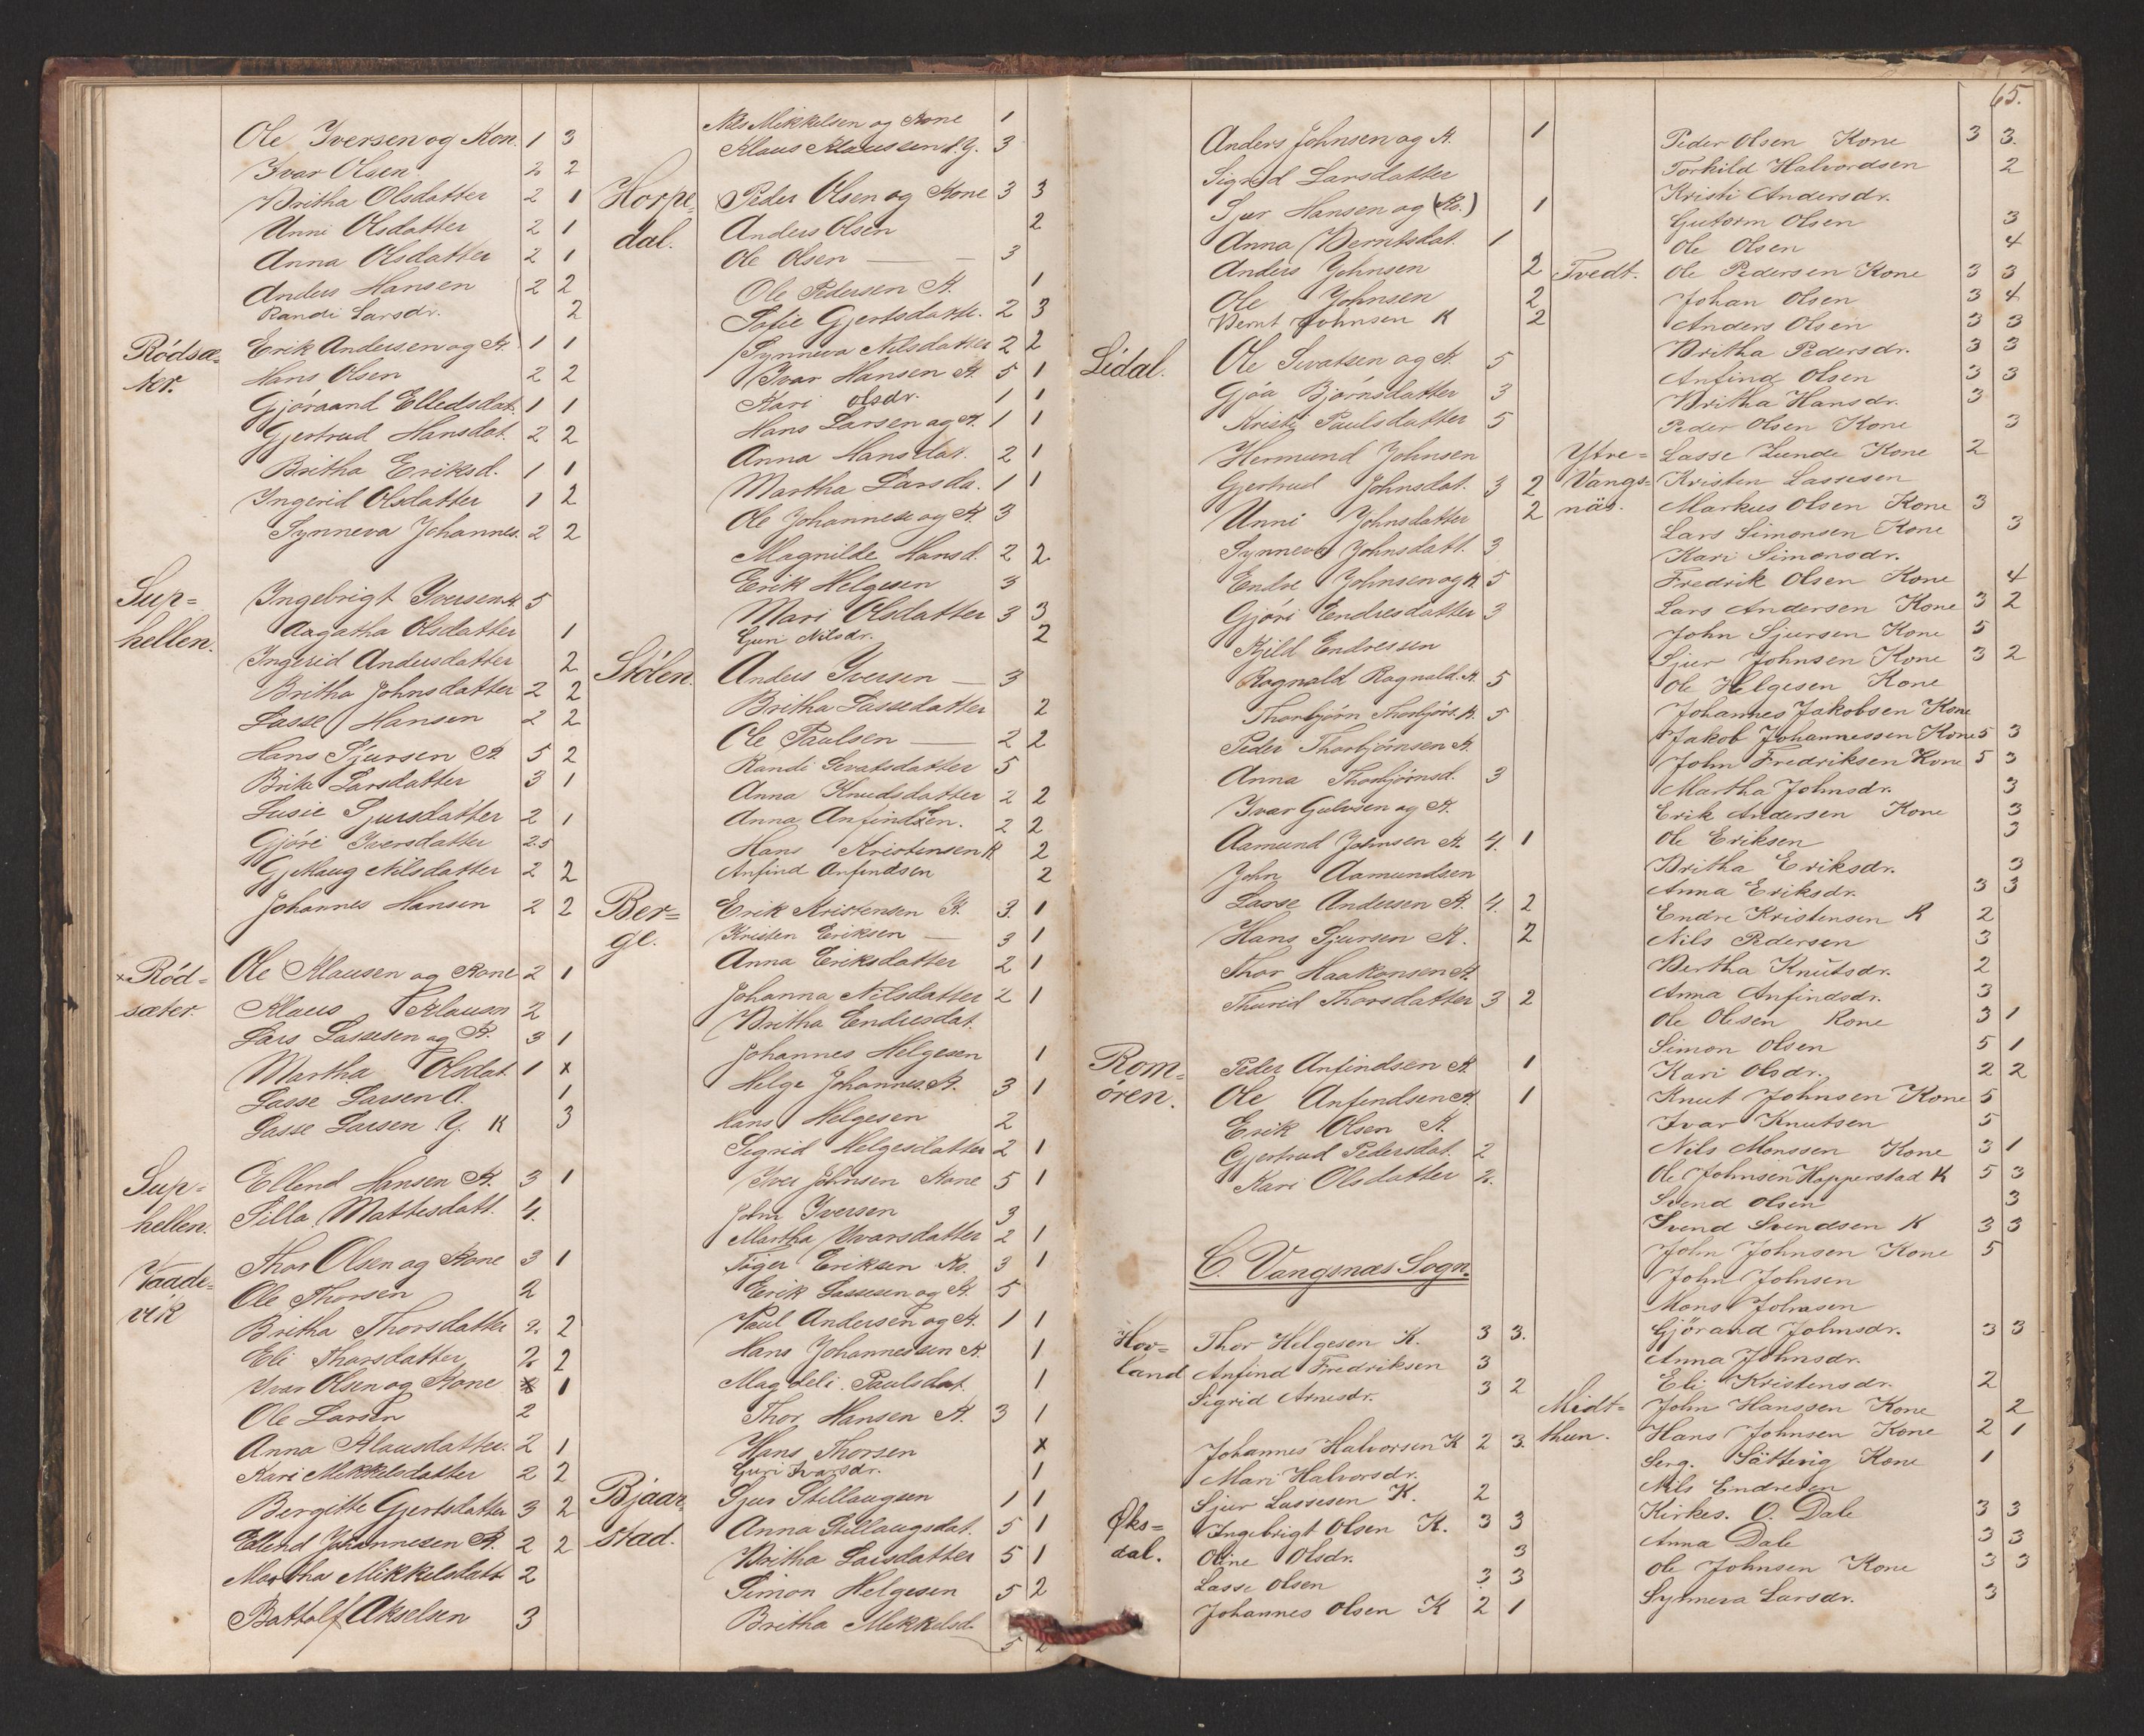 Ole Iversen og Kon. 1 3
Ivar Olsen 2 2
Britha Olsdatter 2 1
Unni Olsdatter 2 1
Anna Olsdatter 2 1
Anders Hansen 2 2
Randi Larsdr. 2
Rödsæ- Erik Andersen og K. 1 1
ter. Hans Olsen 2 2
Gjöraand Elledsdat. 1 1
Gjertrud Hansdat. 2 2
Britha Eriksd. 1 1
Ingerid Olsdatter 1 2
Synneva Johannes. 2 2
Sup= Ingebrigt Iversen K. 5
hellen. Aagatha Olsdatter 1
Ingerid Andersdatter 2
Britha Johnsdatter 2 2
Lasse Hansen 2 2
Hans Sjursen K. 5 2
Brita Larsdatter 3 1
Susie Sjursdatter 2 1
Gjöri Iversdatter 2.5
Gjetlaug Nilsdatter 2 2
Johannes Hansen 2 2
×Röd= Ole Klausen og Kone 2 1
sæter Klaus Klausen 2
Lars Lassesen og K. 3 1
Martha Olsdat. 1 x
Lasse Larsen O. 1
Lasse Larsen Y. K 3
Sup= Ellend Hansen K. 3 1
hellen. Silla Mattesdatt. 4.
Vaade- Thor Olsen og Kone 3 1
vik Ole Thorsen 2
Britha Thorsdatter 2 2
Eli Thorsdatter 2 2
Ivar Olsen og Kone x 1
Ole Larsen 2
Anna Klausdatter. 2 1
Kari Mikkelsdatter 2 2
Bergitte Gjertsdatter 3 2
Ellend Johannesen K. 2 2
Martha Mikkelsdatt 2
Battolf Akselsen 3
Nils Mikkelsen og Kone 1
Klaus Klaussen d.Y. 3
Horpe= Peder Olsen og Kone 3 3
dal. Anders Olsen 2
Ole Olsen — 3
Ole Pedersen K. 1
Sofie Gjertsdatte. 2 3
Synneva Nilsdatter 2 2
Ivar Hansen K. 5 1
Kari olsdr. 1 1
Hans Larsen og K. 1 1
Anna Hansdat. 2 1
Martha Larsda. 1 1
Ole Johannese og K. 3
Magnilde Hansd. 2 2
Erik Helgesen 3
Mari Olsdatter 3 3
Guri Nilsdr. 2
Stölen. Anders Iversen — 3
Britha Lassedatter 2
Ole Paulsen — 2 2
Randi Sevatsdatter 5
Anna Knudsdatter 2 2
Anna Anfindsen. 2 2
Hans Kristensen K 2
Anfind Anfindsen 2
Ber= Erik Kristensen K. 3. 1
ge. Kristen Eriksen — 3 1
Anna Eriksdatter 2 1
Johanna Nilsdatter 2 1
Britha Endresdat.
Johannes Helgesen 1
Helge Johannes. K. 3 1
Hans Helgesen 2
Sigrid Helgesdatter 2 1
Iver Johnsen Kone 5 1
John Iversen 3
Martha Ivarsdatter 2 1
Töger Eriksen Ko. 3 1
Erik Lassesen og K. 5
Paul Andersen og K. 1 1
Hans Johannessen K. 1
Magdeli. Paulsdat. 1
Thor Hansen K. 3 1
Hans Thorsen x
Guri Ivarsdr. 1
Bjaar Sjur Stellaugsen 1 1
stad. Anna Stellaugsdat. 5 1
Britha Larsdatter 5 1
Simon Helgesen 5 2
Britha Mikkelsd. 5 2
Anders Johnsen og K. 1
Sigrid Larsdatter
Sjur Hansen og (Ko.) 1
Anna Berntsdat. 1
Anders Johnsen 2
Ole Johnsen 2
Bernt Johnsen K 2
Lidal. Ole Sevatsen og K. 5
Gjöa Bjørnsdatter 3
Kristi Paulsdatter 5
Hermund Johnsen
Gjertrud Johnsdat. 3 2
Unni Johnsdatter 2
Synneva Johnsdatt. 3
Endre Johnsen og K 5
Gjöri Endresdatter 3
Kjild Endressen
Ragnald Ragnald. K. 5
Thorbjørn Thorbjörs. K. 5
Peder Thorbjörnsen K.
Anna Thorbjörnsd. 3
Ivar Gulvsen og K.
Aamund Johnsen K. 4. 1
John Aamundsen
Lasse Andersen K. 4. 2
Hans Sjursen K. 2
Thor Haakonsen K.
Thurid Thorsdatter 3 2
Rom- Peder Anfindsen K 1
ören. Ole Anfindsen K. 1
Erik Olsen K.
Gjertrud Pedersdat. 2
Kari Olsdatter 2.
C. Vangsnæs Sogn.
Hov= Thor Helgesen K. 3 3.
land Anfind Fredriksen 3
Sigrid Arnesdr. 3 2
Johannes Halvorsen K 2 3.
Mari Halvorsdr.
Sjur Lassesen K. 2
Øks= Ingebrigt Olsen K. 3 3
dal. Oline Olsdr. 3
Lasse Olsen 3 3
Johannes Olsen K 2 1
65.
Peder Olsen Kone 3 3.
Torkild Halvordsen 2
Kristi Andersdr.
Gutorm Olsen 3
Ole Olsen 4
Tvedt. Ole Pedersen Kone 3 3
Johan Olsen 3 4
Anders Olsen 3 3
Britha Pedersdr. 3 3
Anfind Olsen 3 3
Britha Hansdr. 3
Peder Olsen Kone 3
Ytre= Lasse Lunde Kone 2
Vangs= Kristen Lassesen
näs. Markus Olsen Kone 3
Lars Simonsen Kone 3
Kari Simonsdr.
Fredrik Olsen Kone 4
Lars Andersen Kone 3 2
John Sjursen Kone 5
Sjur Johnsen Kone 3 2
Ole Helgesen Kone
Johannes Jakobsen Kone
Jakob Johannessen Kone 5 3
John Fredriksen Kone 5 3
Martha Johnsdr. 3
Erik Andersen Kone 3
Ole Eriksen 3
Britha Eriksdr. 3
Anna Eriksdr. 3 3
Endre Kristensen K 2
Nils Pedersen 3
Bertha Knutsdr. 2
Anna Anfindsdr. 3
Ole Olesen Kone 3 1
Simon Olsen 5 1
Kari Olsdr. 2 2
Knut Johnsen Kone 5
Ivar Knutsen 5
Nils Monssen Kone 3 1
Ole Johnsen Hopperstad K 5 3
Svend Olsen 3
Svend Svendsen K 3 3
John Johnsen Kone 5
John Johnsen
Mons Johnsen
Gjörand Johnsdr. 3 3
Anna Johnsdr.
Eli Kristensdr. 2
Midt= John Hanssen Kone 2
thun. Hans Johnsen Kone 2 1
Serg. Sättevig Kone 1
Nils Endresen
Kirkes. O. Dale 3 3
Anna Dale 3 3
Ole Johnsen Kone 3 3
Synneva Larsdr. 3